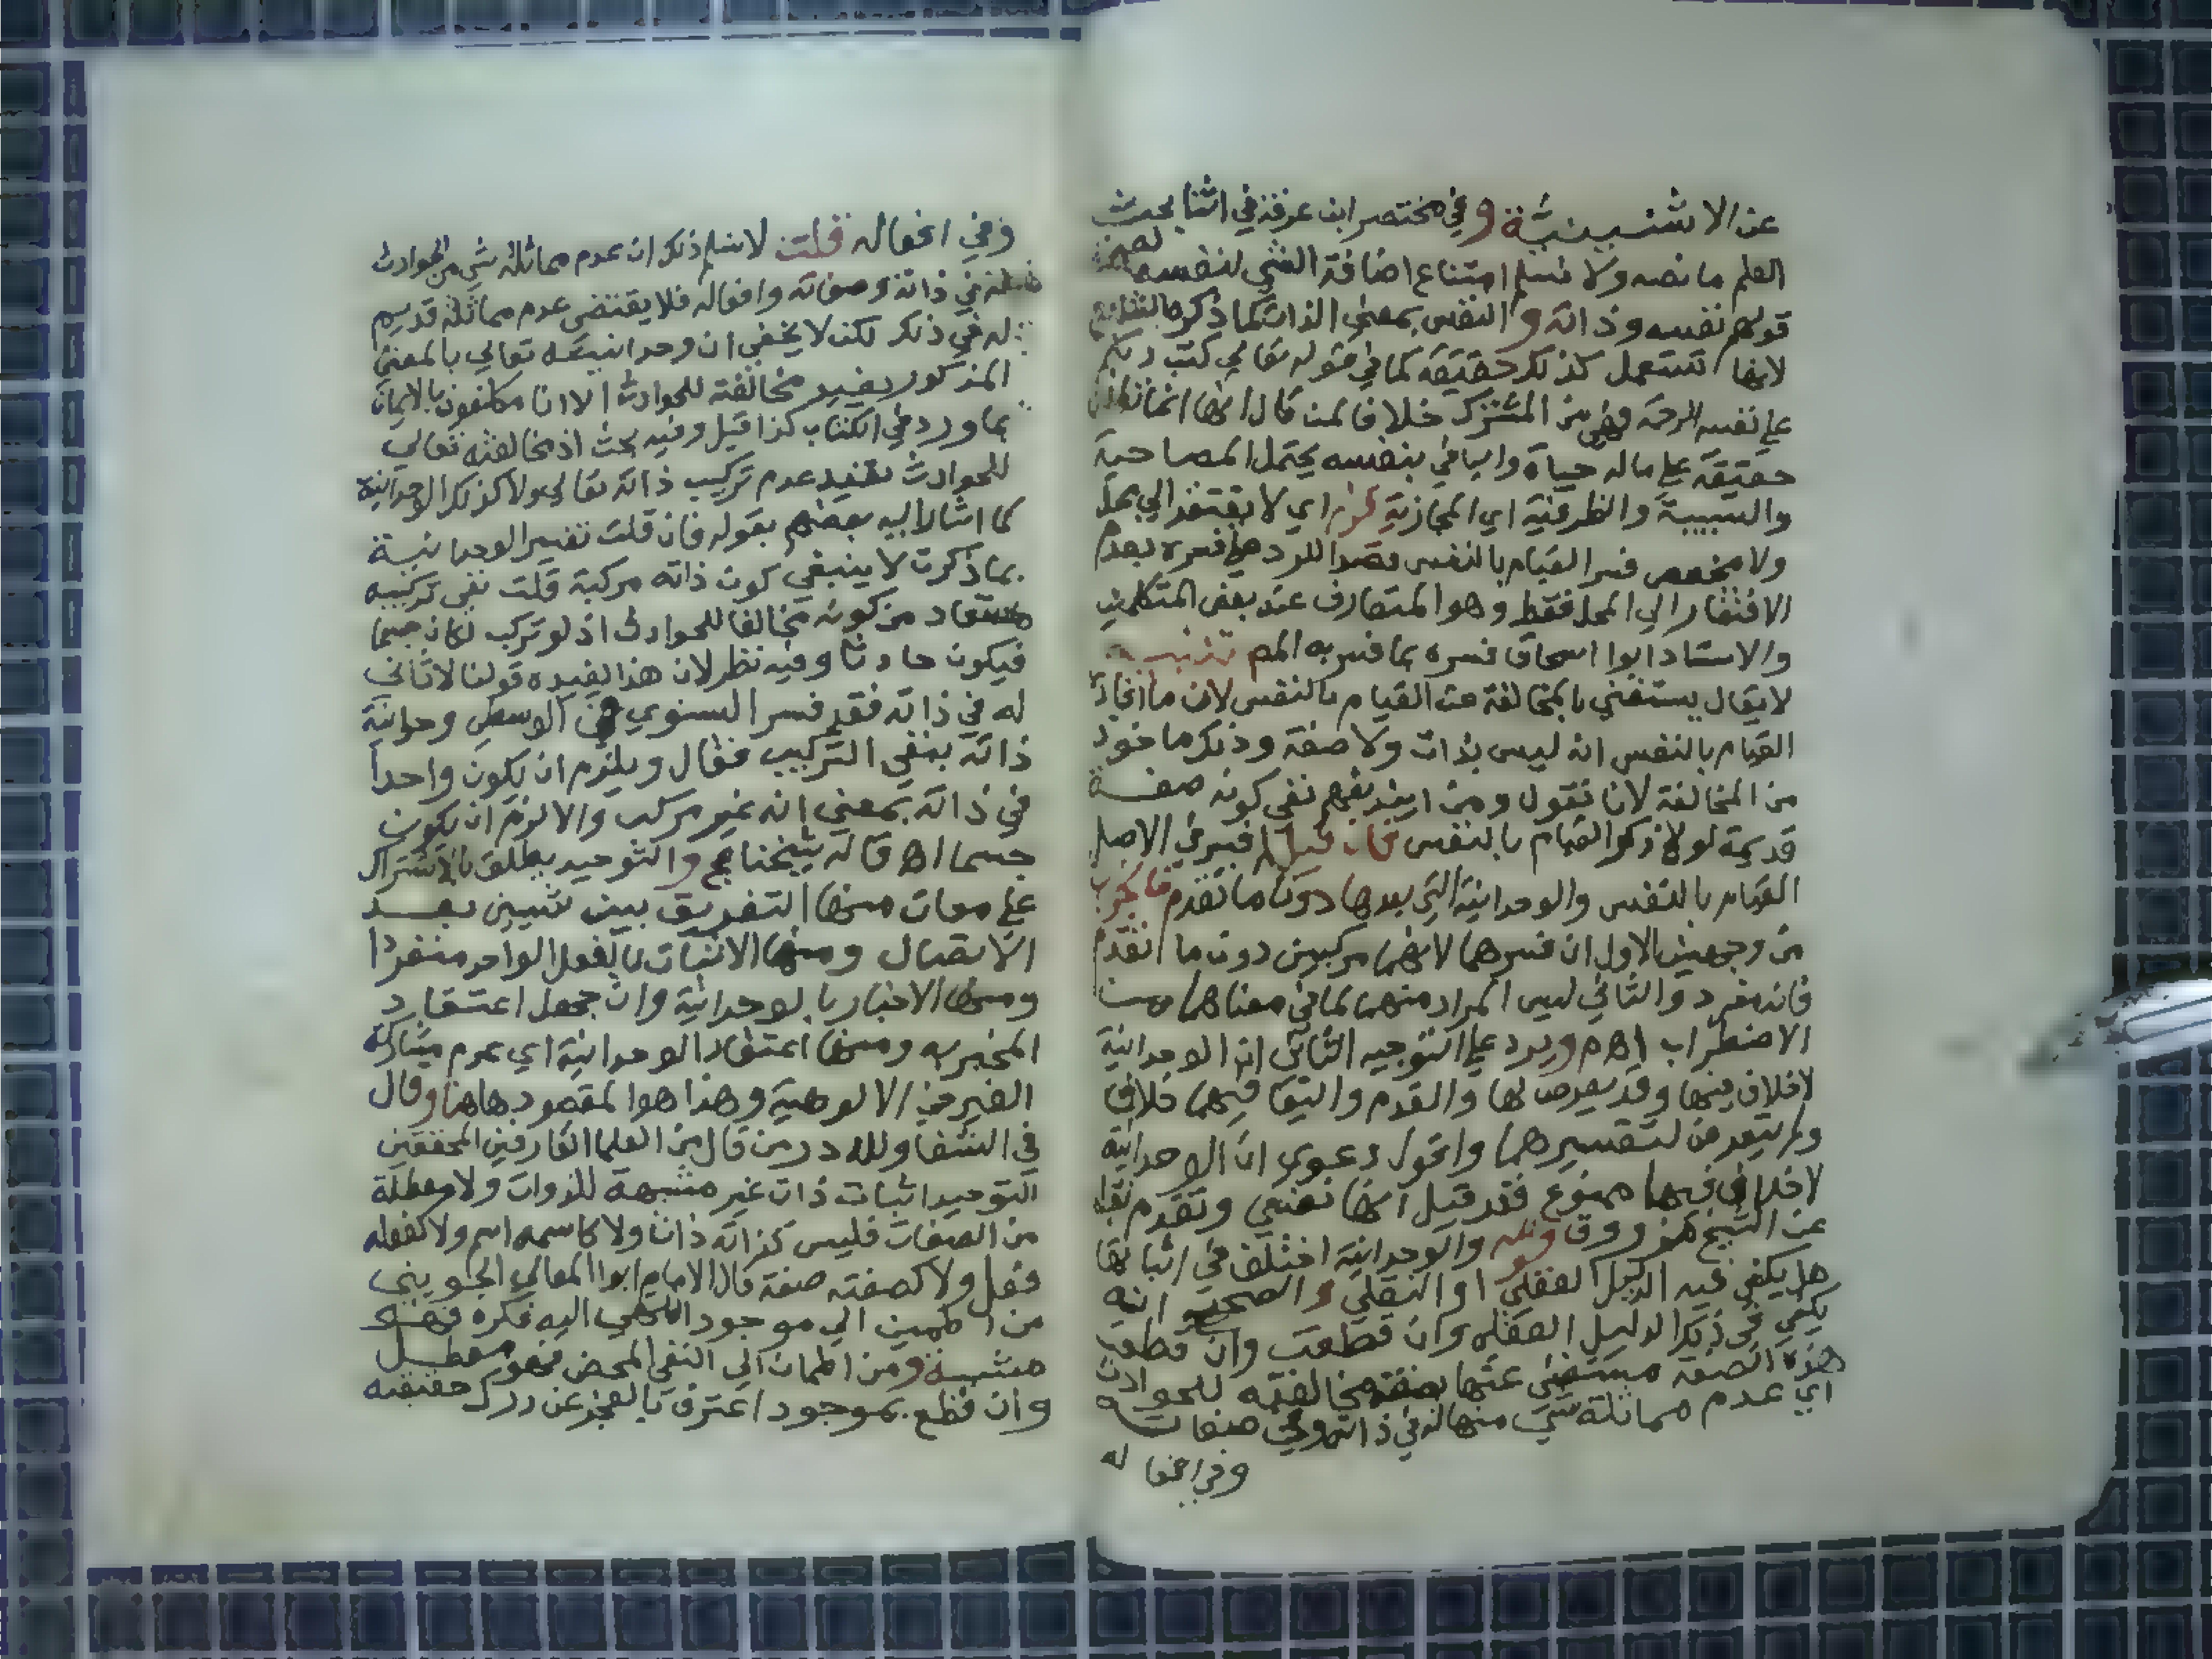 عن الاشنينية وفي مختصر ابن عرفة في اثنا بحث
العلم ما نصه ولا نسلم امتناع اضافة الشي لنفسه لصحة
قولهم نفسه وذاته والنفس بمعنى الذات كما ذكره
لانها تستعمل كذلك حقيقة كما في قوله تعالي كتب ربكم
علي نفسه الرحمة وهي من المشترك خلافا لمن قال انها انما تطلق
حقيقة علي ماله حياة والبا في بنفسه يحتمل المصاحبة
والسببية والظرفية اي المجازية قوله اي لا يفتقر الي محل
ولا مخصص فسر القيام بالنفس قصدا للرد علي من فسره بعدم
الافتقار الي المحل فقط وهو المتعارف عند بعض المتكلمين
والاستاد ابوا اسحاق فسره بما فسر به المص تنبيه
لا يقال يستغني بالمخالفة عن القيام بالنفس لان ما افاده
القيام بالنفس انه ليس بذات ولا صفة وذلك ماخوذ
من المخالفة لانا نقول ومن اين يفهم نفي كونه صفة
قديمة لولا ذكر القيام بالنفس فان قيل لم فسر في الاصل
القيام بالنفس والوحدانية التي بعدها دون ما تقدم فالجواب
من وجهين الاول ان فسرهما لانهما مركبين دون ما تقدم
فانه مفرد والثاني ليس المراد منهما لما في معناهما من
الاضطراب اهـ ويرد علي التوجيه الثاني ان الوحدانية
لا خلاف فيها وقد تعرض لها والقدم والبقا فيهما خلاف
ولم يتعرض لتفسيرهما واقول دعوى ان الوحدانية
لا خلاف فيها ممنوع فقد قيل انها نفي وتقدم نقله
عن الشيخ زروق قوله والوحدانية اختلف في اثباتها
هل يكفي فيه الدليل العقلي او النقلي والصحيح انه
يكفي في ذلك الدليل العقلي وان قطعت وان قطعت
هذه الصفة مستغنى عنها بصفة مخالفته للحوادث
اي عدم مماثلة شي منها له في ذاته وفي صفاته
وفي افعاله
وفي افعاله قلت لا نسلم ذلك ان عدم مماثلة شي من الحوادث
له في ذاته وصفاته وافعاله فلا يقتضي عدم مماثلة قديم
له في ذلك لكن لا يخفي ان وحدانيته تعالي بالمعنى
المذكور يفيد مخالفته للحوادث الا انا مكلفون بالايمان
بما ورد في الكتاب كذا قيل وفيه بحث اذ مخالفته تعالي
للحوادث تفيد عدم تركيب ذاته تعالي ولا كذلك الوحدانية
كما اشار اليه بعضهم بقوله فان قلت تفسير الوحدانية
بما ذكرت لا ينبغي كون ذاته مركبة قلت نفي تركيبه
مستفاد من كونه مخالفا للحوادث اذ لو تركب لكان جسما
فيكون حادثا وفيه نظر لان هذا يفيده قولنا لا ثاني
له في ذاته فقد فسر السنوسي في الوسطى وحدانية
ذاته بنفي التركيب فقال ويلزم ان يكون واحدا
في ذاته بمعنى انه غير مركب والا لزم ان يكون
جسما اهـ قاله شيخنا عج والتوحيد يطلق بالاشتراك
علي معان منها التفريق بين شيين بعد
الاتصال ومنها الاتيان بالفعل الواحد منفردا
ومنها الاخبار بالوحدانية وان جهل اعتقاد
المخبر به ومنها اعتقاد الوحدانية اي عدم مشاركة
الغير في الالوهية وهذا هو المقصود هاهنا وقال
في الشفا ولله در من قال من العلما العارفين المحققين
التوحيد اثبات ذات غير مشبهة للذوات ولا معطلة
من الصفات فليس كذاته ذات ولا كاسمه اسم ولا كفعله
فعل ولا كصفته صفة قال الامام ابوا المعالي الجويني
من اطمين الي موجود انتهي اليه فكره فهو
مشبه ومن اطمان الي النفي المحض فهو معطل
وان قطع بموجود اعترف بالعجز عن درك حقيقته